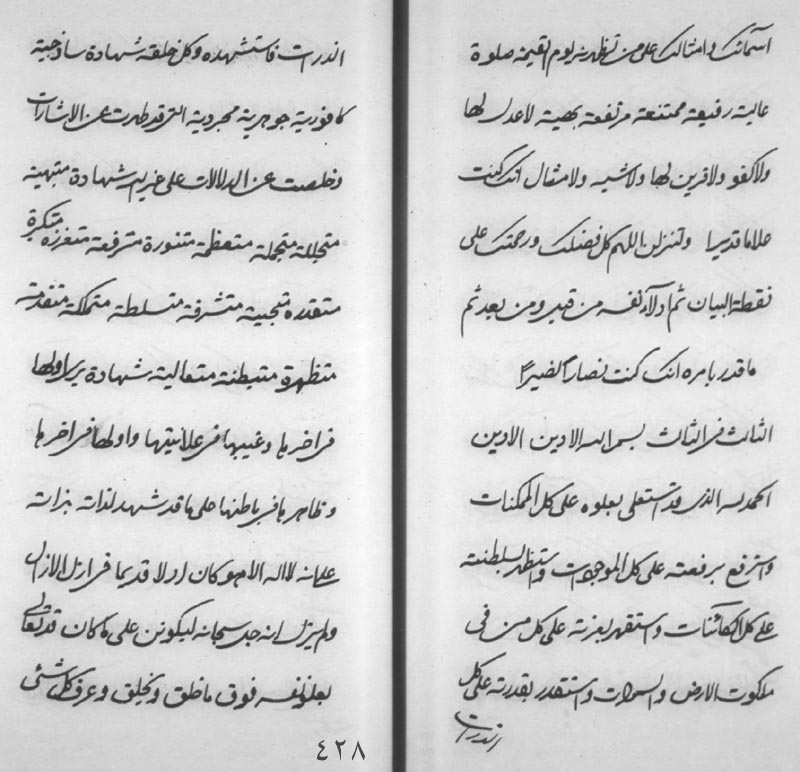 اسمائك و امثالك على من تظهرنه يوم القيمة صلوة
عالية رفيعة ممتنعة مرتفعة بهية لا عدل لها
ولا كفو ولا قرين لها ولا شبيه ولا مثال انك كنت
علاما قديرا ولتنزلن اللهم كل فضلك ورحمتك على
نقطة البيان ثم ادلاء نفسه من قبل ومن بعد ثم
ما قدر بامره انك كنت نصارا نصيرا
الثالث فى الثالث بسم الله الادين الادين
الحمد لله الذى قد استعلى بعلوه على كل الممكنات
واسترفع برفعته على كل الموجودات واستظهر بسلطنته
على كل الكائنات واستقهر بعزته على كل من فى
ملكوت الارض والسموات واستقدر بقدرته على كل
الذرات
الذرات فاستشهده وكل خلقه شهادة ساذجية
كافورية جوهرية مجردية التى قد طهرت عن الاشارات
وخلصت عن الدلالات على عز شهادة متبهية
متجللة متجملة متعظمة متنورة مترفعة متعززة متكبرة
متقدرة متشرفة متسلطة متملكة
متظهرة متبطنة متعالية شهادة اولها
فى اخرها وغيبها فى علانيتها واولها فى اخرها
وظاهرها فى باطنها على ما قد شهد لذاته بذاته
على انه لا اله الا هو كان ازلا قديما فى ازل الازال
ولم يزل انه جل سبحانه ليكونن على ما كان قد تعالى
بعلو نفسه فوق ما خلق ويخلق وعرف كل شئ
٤٢٨